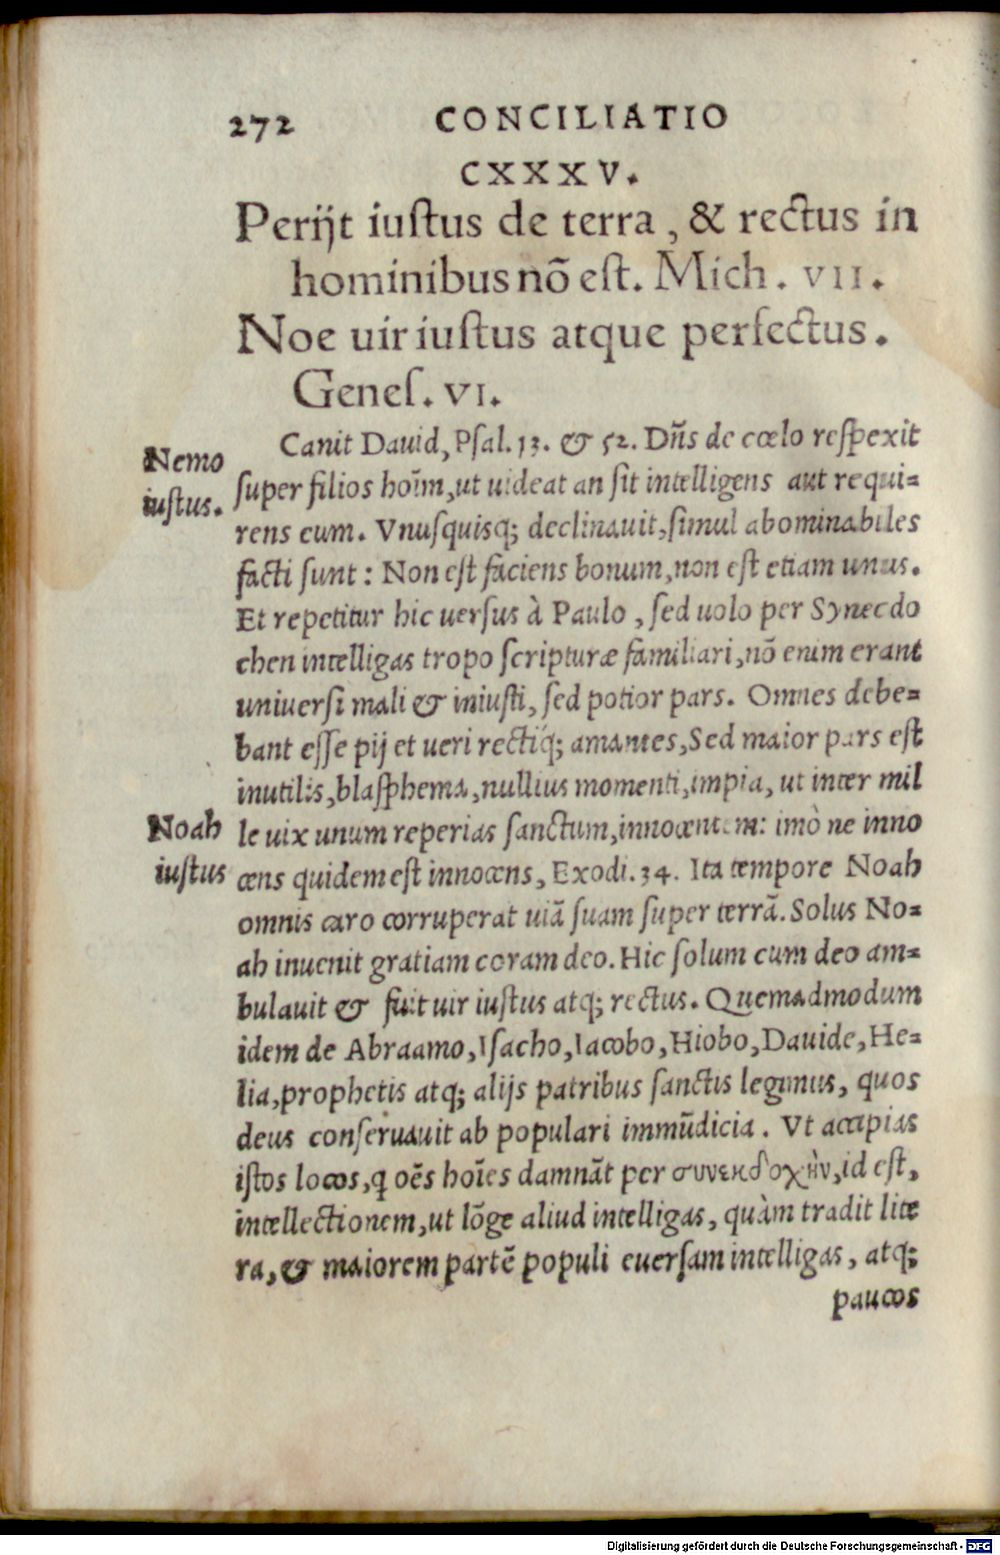 272 CONCILIATIO
CXXXV.
Perijt iustus de terra, & rectus in
hominibus nõ est. Mich. VII.
Noe uir iustus atque perfectus.
Genes. VI.
Canit Dauid, Psal. 13. & 52. Dñs de cœlo respexit
Nemo
super filios hoĩm, ut uideat an sit intelligens aut requi=
iustus.
rens eum. Vnusquisq; declinauit, simul abominabiles
facti sunt: Non est faciens bonum, non est etiam unus.
Et repetitur hic uersus à Paulo, sed uolo per Synecdo
chen intelligas tropo scripturæ familiari, nõ enim erant
uniuersi mali & iniusti, sed potior pars. Omnes debe=
bant esse pij et ueri rectiq́; amantes, Sed maior pars est
inutilis, blasphema, nullius momenti, impia, ut inter mil
Noah
le uix unum reperias sanctum, innocentem: imò ne inno
iustus
cens quidem est innocens, Exodi. 34. Ita tempore Noah
omnis caro corruperat uiã suam super terrã. Solus No=
ah inuenit gratiam coram deo. Hic solum cum deo am=
bulauit & fuit uir iustus atq; rectus. Quemadmodum
idem de Abraamo, Isacho, Iacobo, Hiobo, Dauide, He=
lia, prophetis atq; alijs patribus sanctis legimus, quos
deus conseruauit ab populari immũdicia. Vt accipias
istos locos, q oẽs hoĩes damnãt per συνεκδοχὴν, id est,
intellectionem, ut lõge aliud intelligas, quàm tradit lite
ra, & maiorem partẽ populi euersam intelligas, atq;
paucos
Digitalisierung gefördert durch die Deutsche Forschungsgemeinschaft - DFG